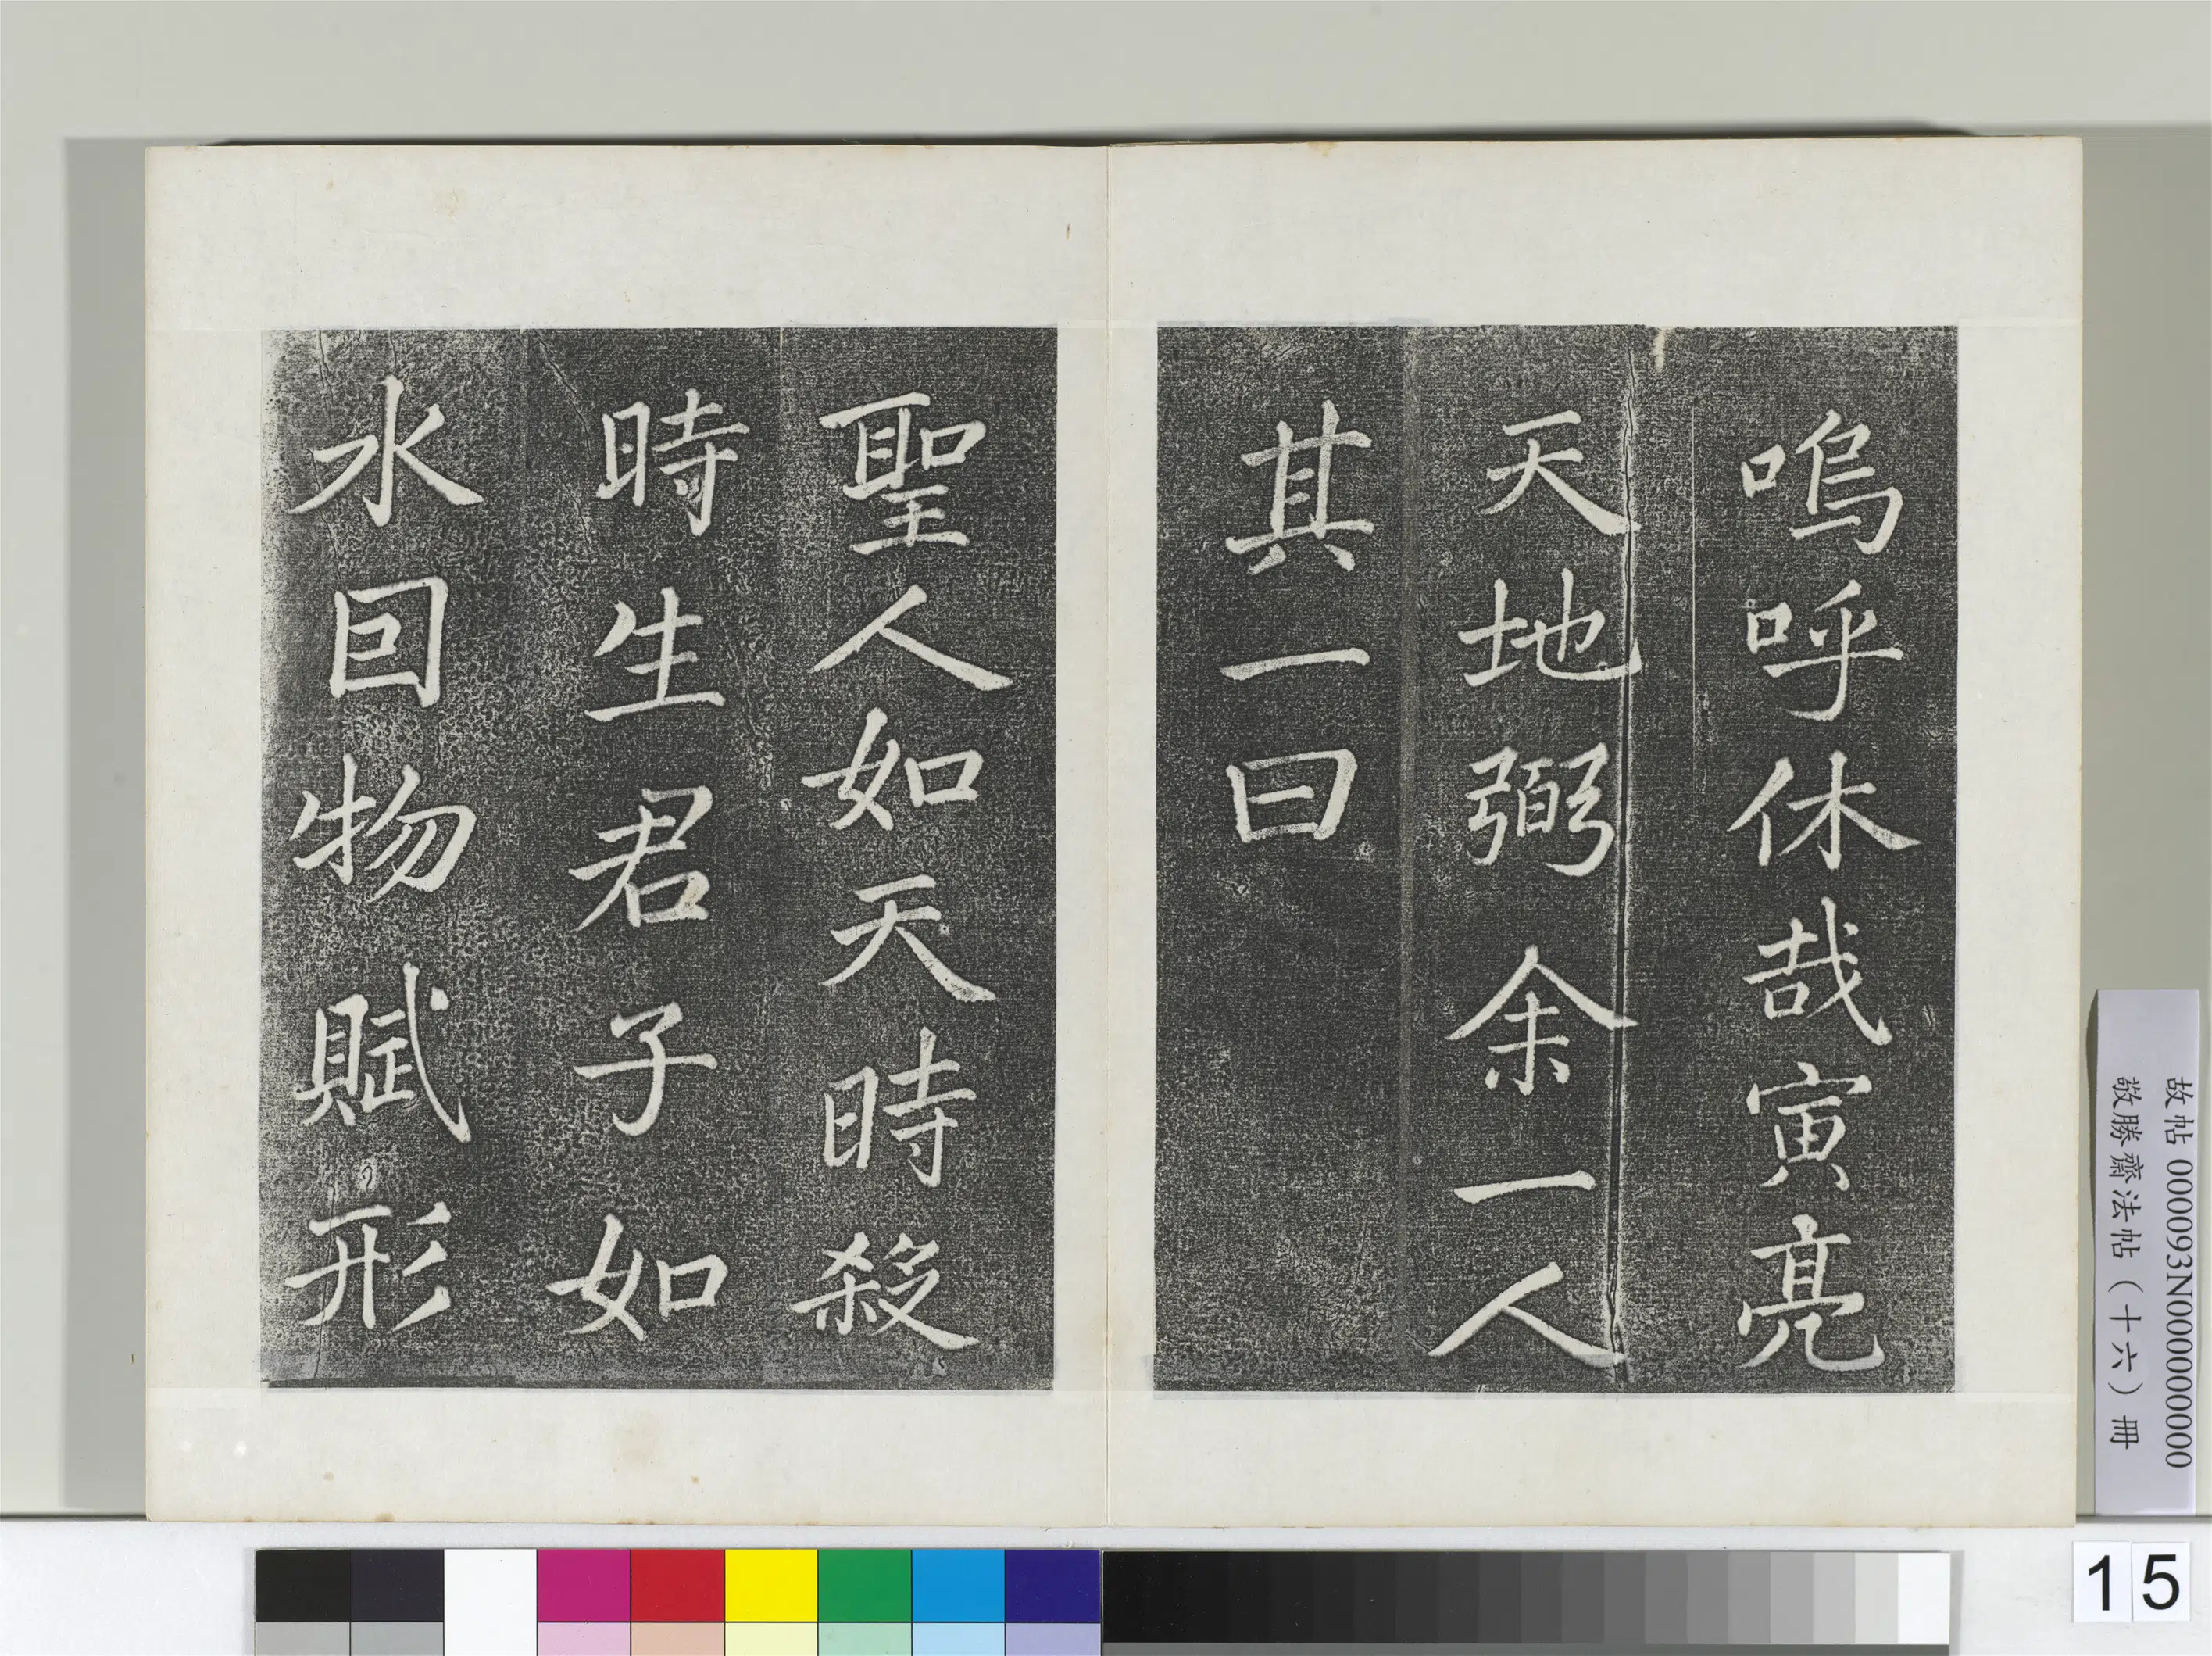 嗚呼休哉寅亮
天地弼余一人
其一曰
聖人如天時殺
時生君子如
水囙物賦形
故帖 000093N000000000
敬勝齋法帖（十六）冊
15